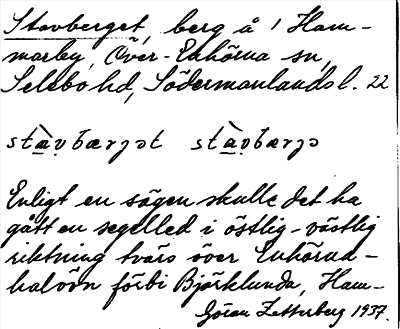 Stavberget, berg å 1 Ham-
marby, Över-Enhörna sn,
Selebo hd, Södermanlands l. 22
stà̱v̥bærjət stà̱v̥bærjə
Enligt en sägen skulle det ha
gått en segelled i östlig-västlig
riktning tvärs över Enhörna-
halvön förbi Björklunda, Ham-
Göran Zetterberg 1937.